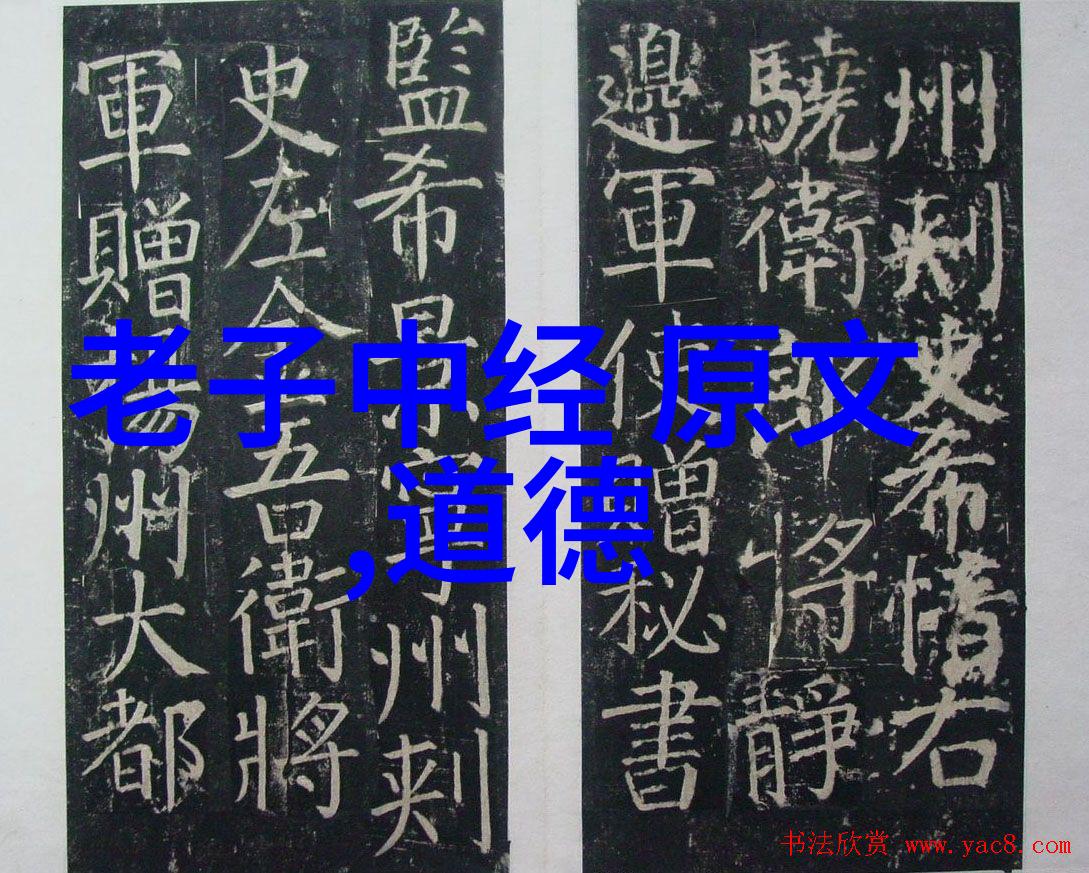 州刺史希右
驍衛郎將靜
邊軍使贈秘書
監希景寧州刺
史左金吾衛將
軍贈揚州大都
老子中经 原文
,道德
书法欣赏 www.yac8.com